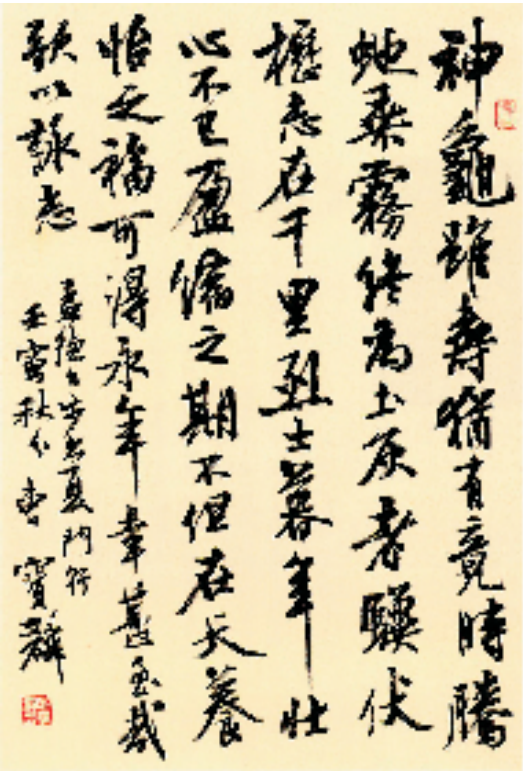 神龜雖壽猶有竟時騰
蛇乘霧終為土灰老驥伏
櫪志在千里烈士暮年壯
心不已盈縮之期不但在天養
怡之福可得永年幸甚至哉
歌以詠志
孟德公步出夏門行
壬寅秋曹寶麟